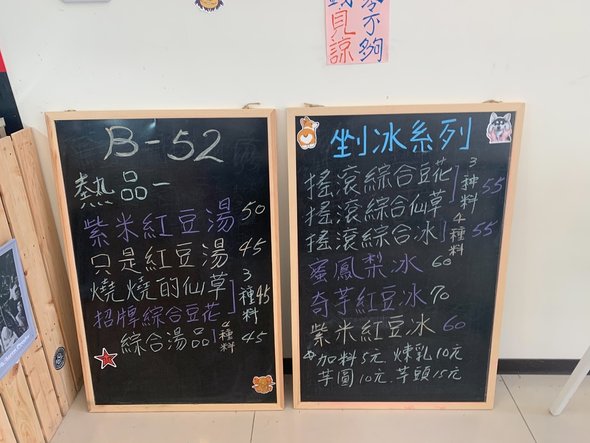 零不夠
見諒
B-52
熱品一
紫米紅豆湯 50
只是紅豆湯 45
燒燒的仙草
招牌綜合豆花
3種料 45
綜合湯品 4種料 45
剉冰系列
搖滾綜合豆花
搖滾綜合仙草
3種料 55
搖滾綜合冰 4種料 55
蜜鳳梨冰 60
奇芋紅豆冰 70
紫米紅豆冰 60
加料5元 煉乳10元
芋圓10元、芋頭15元